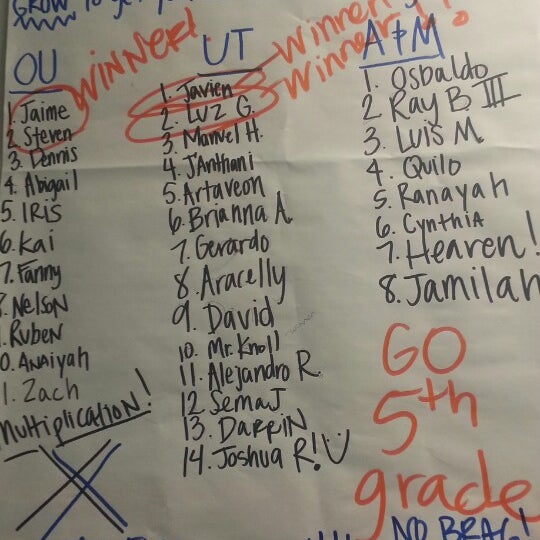 GROW to get
WINNER!
Winner!
Winner!
OU
1. Jaime
2 Steven
3. Dennis
4. Abigail
5. IRIS
6. Kai
7. Fanny
8. NELSON
9. RUBEN
10. ANAiyah
11. Zach
Multiplication!
UT
1. Javien
2. LUZ G.
3. Manuel H.
4. J'Anthani
5. Artaveon
6. Brianna A.
7. Gerardo
8. Aracelly
9. David
10. Mr. Knoll
11. Alejandro R.
12 Semaj
13. DARRIN
14. Joshua R!
A&M
1. Osbaldo
2 Ray B III
3. Luis M.
4. Quilo
5. Ranayah
6. CYNTHIA
7. Heaven!
8. Jamilah
GO
5th
grade
NO BRAG!